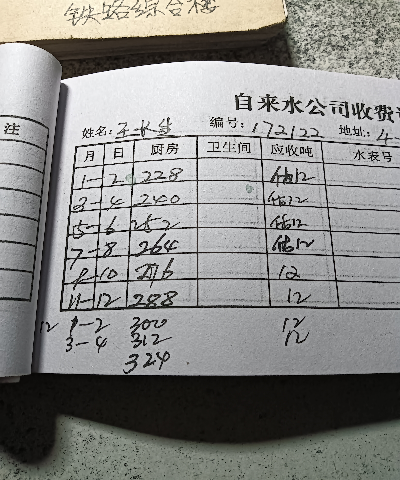 铁路综合楼
自来水公司收费
注
姓名: 王长生 编号: 172122 地址: 4-
月 日 厨房 卫生间 应收吨 水表号
1-2 228 估12
3-4 240 估12
5-6 252 估12
7-8 264 估12
9-10 276 12
11-12 288 12
12 1-2 300 12
3-4 312 12
324